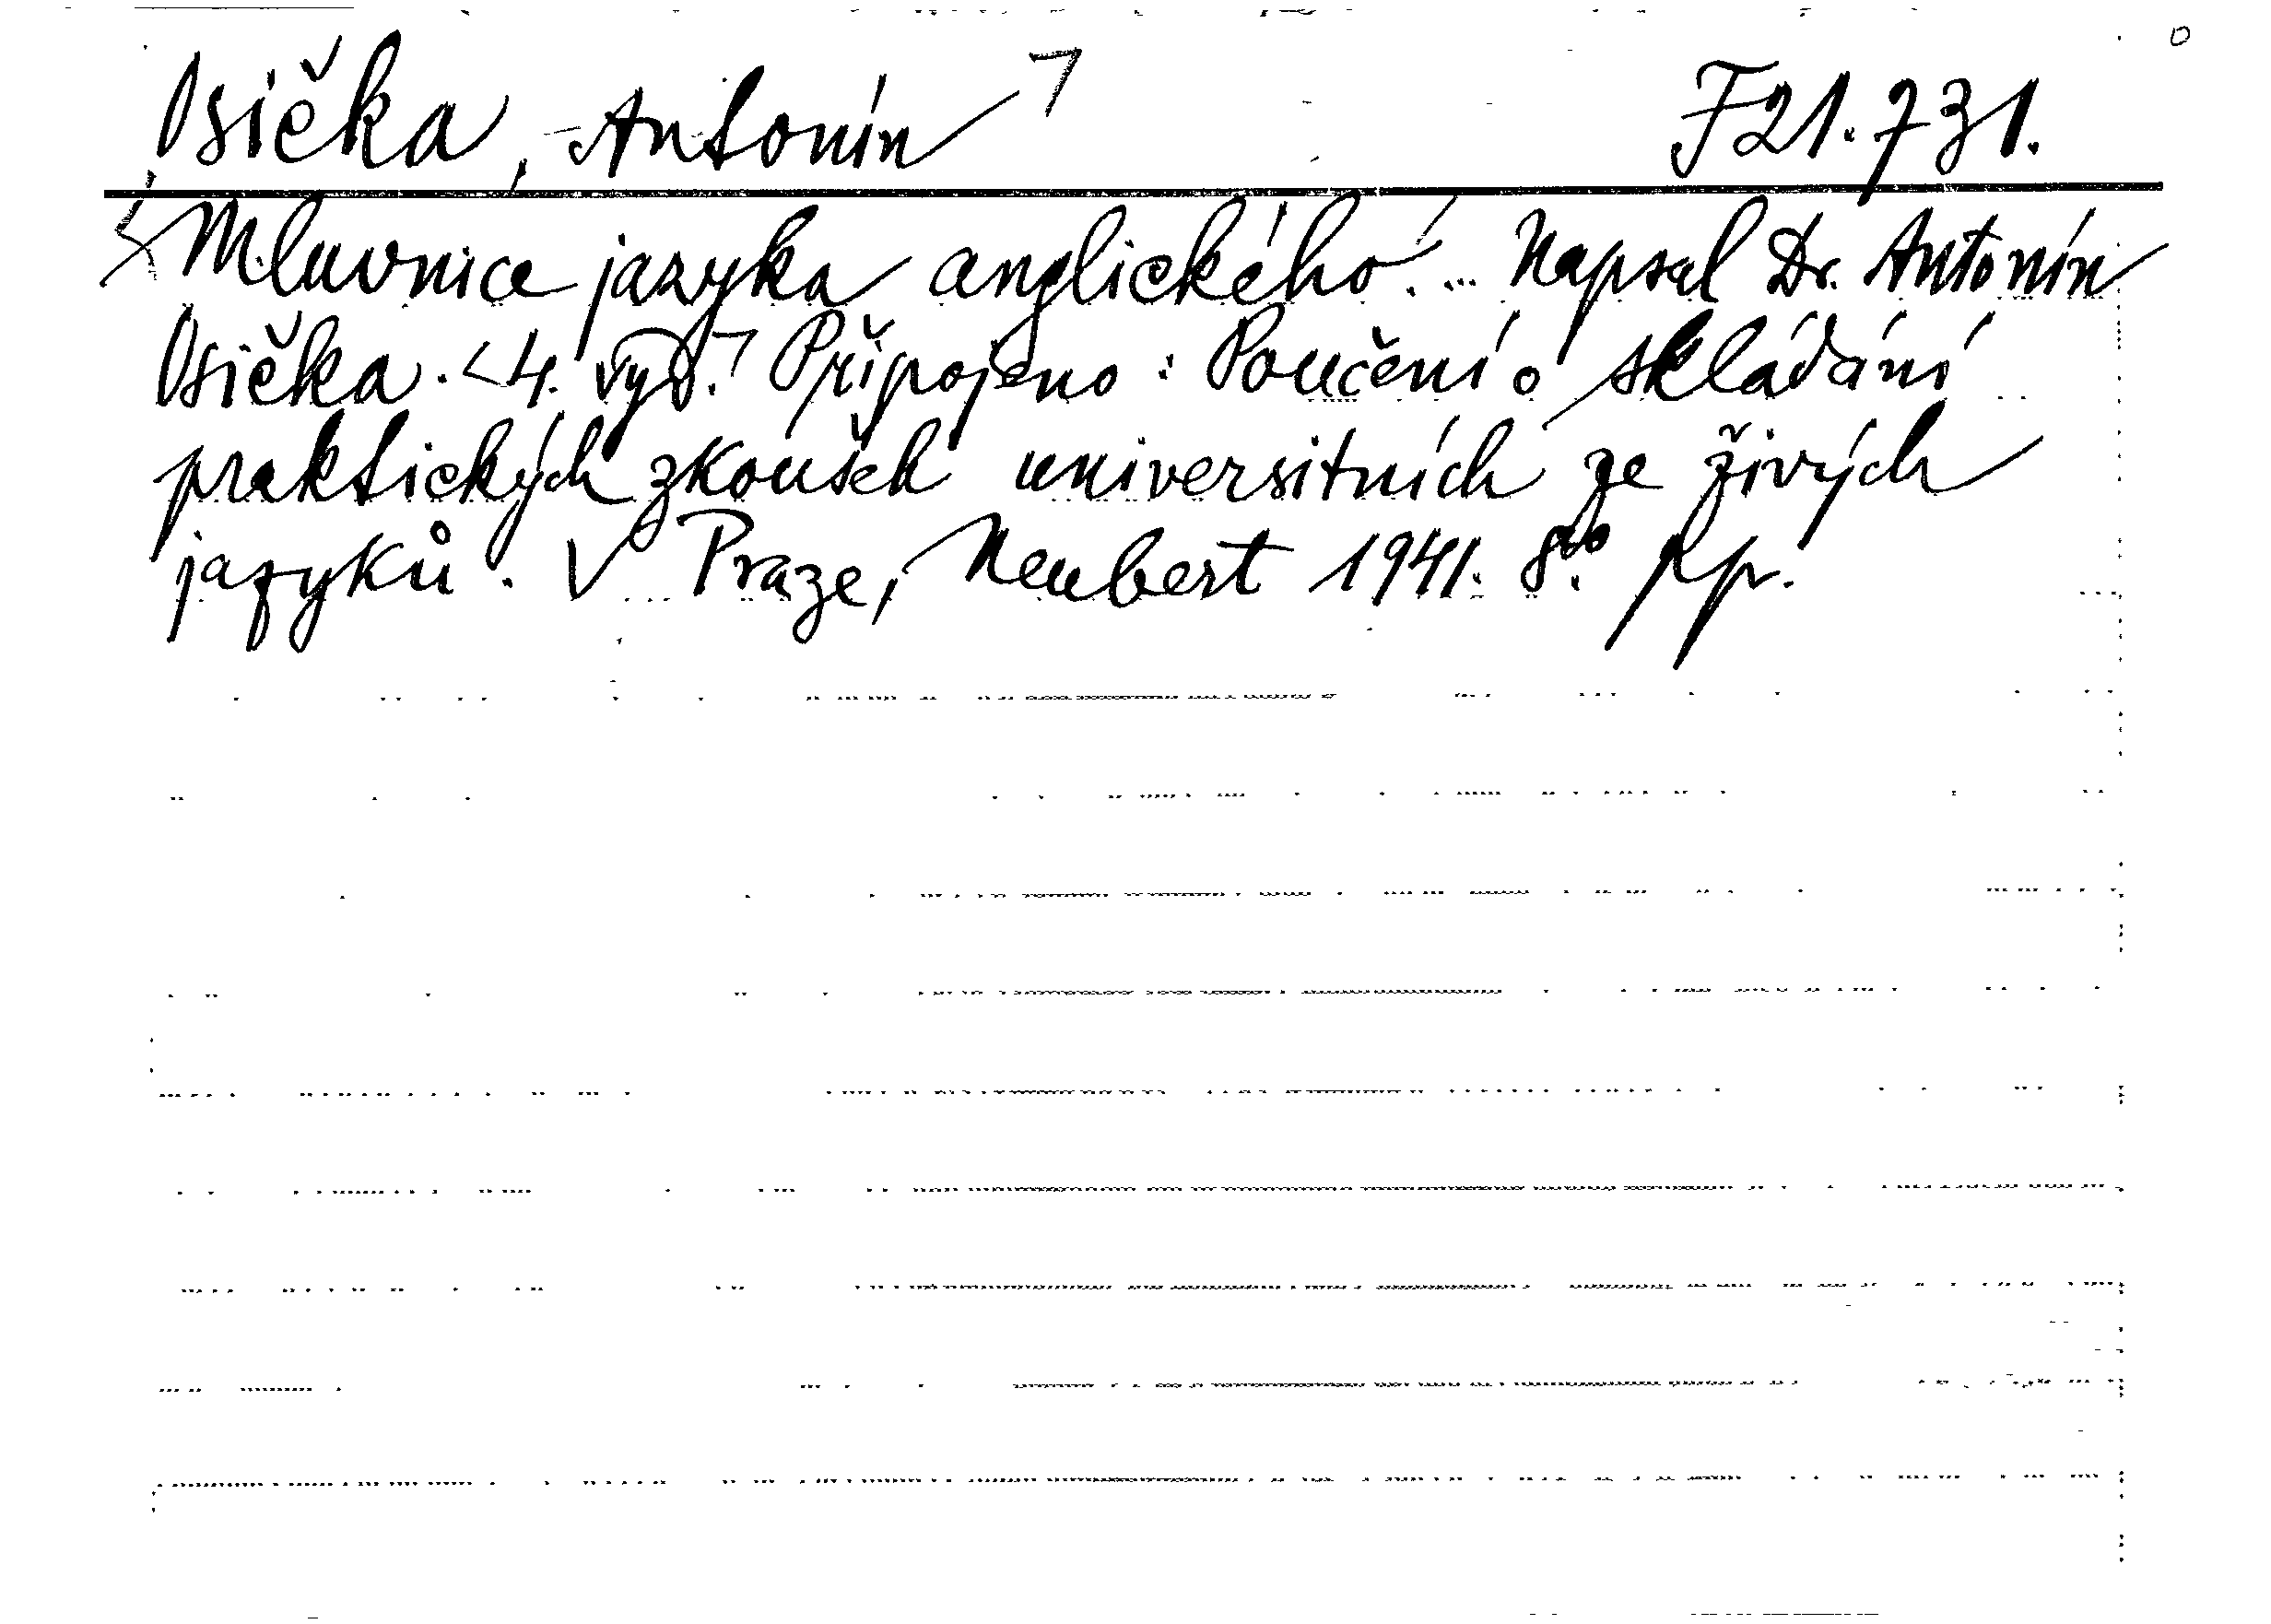 Osička, Antonín F21.731.
Mluvnice jazyka anglického. ... Napsal Dr. Antonín
Osička. <4. vyd.> Připojeno: Poučení o skládání
praktických zkoušek universitních ze živých
jazyků. V Praze, Neubert 1941. 8°.